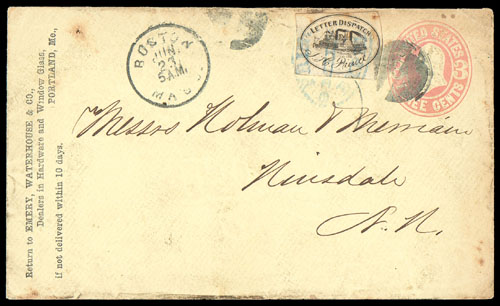 Return to EMERY, WATERHOUSE & CO.,
Dealers in Hardware and Window Glass,
PORTLAND, Me.,
if not delivered within 10 days.
BOSTON
JUN.
23
5AM.
MASS
LETTER DISPATCH
UNITED STATES
THREE CENTS
Messrs Holman & Merriam
Hinsdale
N. H.